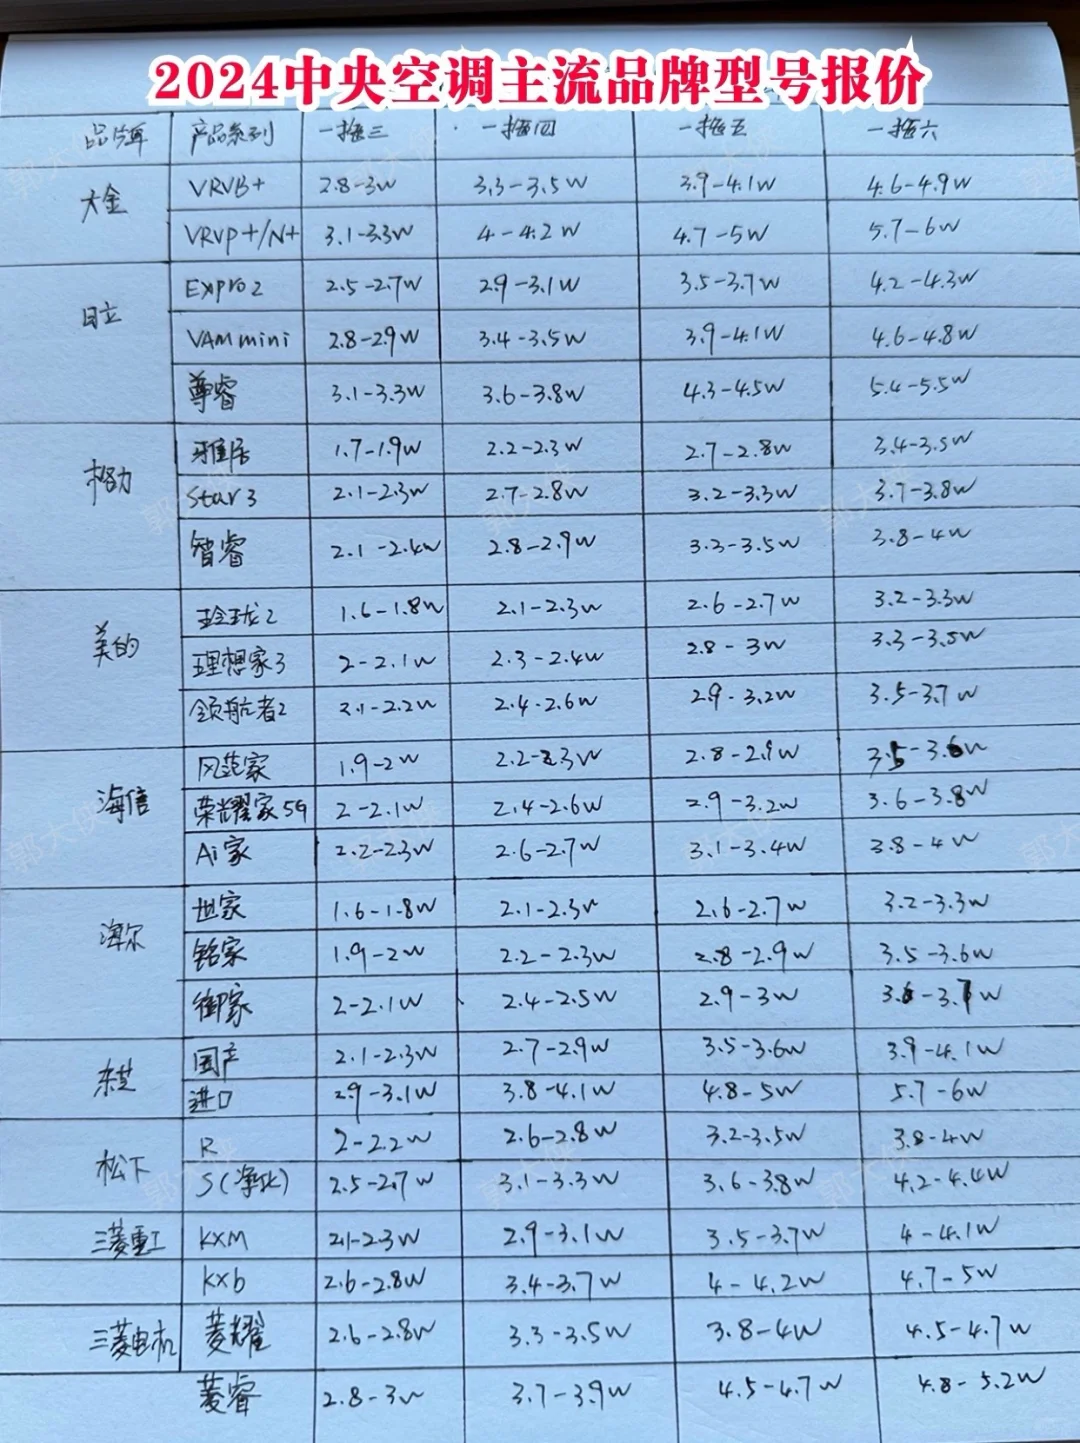 2024中央空调主流品牌型号报价
品牌 产品系列 一拖三 一拖四 一拖五 一拖六
大金 VRVB+ 2.8-3w 3.3-3.5w 3.9-4.1w 4.6-4.9w
VRVP+/N+ 3.1-3.3w 4-4.2w 4.7-5w 5.7-6w
日立 Expro2 2.5-2.7w 2.9-3.1w 3.5-3.7w 4.2-4.3w
VAM mini 2.8-2.9w 3.4-3.5w 3.9-4.1w 4.6-4.8w
尊睿 3.1-3.3w 3.6-3.8w 4.3-4.5w 5.4-5.5w
格力 雅居 1.7-1.9w 2.2-2.3w 2.7-2.8w 3.4-3.5w
Star3 2.1-2.3w 2.7-2.8w 3.2-3.3w 3.7-3.8w
智睿 2.1-2.4w 2.8-2.9w 3.3-3.5w 3.8-4w
美的 玲珑2 1.6-1.8w 2.1-2.3w 2.6-2.7w 3.2-3.3w
理想家3 2-2.1w 2.3-2.4w 2.8-3w 3.3-3.5w
领航者2 2.1-2.2w 2.4-2.6w 2.9-3.2w 3.5-3.7w
海信 风范家 1.9-2w 2.2-2.3w 2.8-2.9w 3.5-3.6w
荣耀家5G 2-2.1w 2.4-2.6w 2.9-3.2w 3.6-3.8w
Ai家 2.2-2.3w 2.6-2.7w 3.1-3.4w 3.8-4w
海尔 世家 1.6-1.8w 2.1-2.3w 2.6-2.7w 3.2-3.3w
铭家 1.9-2w 2.2-2.3w 2.8-2.9w 3.5-3.6w
御家 2-2.1w 2.4-2.5w 2.9-3w 3.6-3.7w
东芝 国产 2.1-2.3w 2.7-2.9w 3.5-3.6w 3.9-4.1w
进口 2.9-3.1w 3.8-4.1w 4.8-5w 5.7-6w
松下 R 2-2.2w 2.6-2.8w 3.2-3.5w 3.8-4w
S(净化) 2.5-2.7w 3.1-3.3w 3.6-3.8w 4.2-4.4w
三菱重工 KXM 2.1-2.3w 2.9-3.1w 3.5-3.7w 4-4.1w
KX6 2.6-2.8w 3.4-3.7w 4-4.2w 4.7-5w
三菱电机 菱耀 2.6-2.8w 3.3-3.5w 3.8-4w 4.5-4.7w
菱睿 2.8-3w 3.7-3.9w 4.5-4.7w 4.8-5.2w
郭大侠